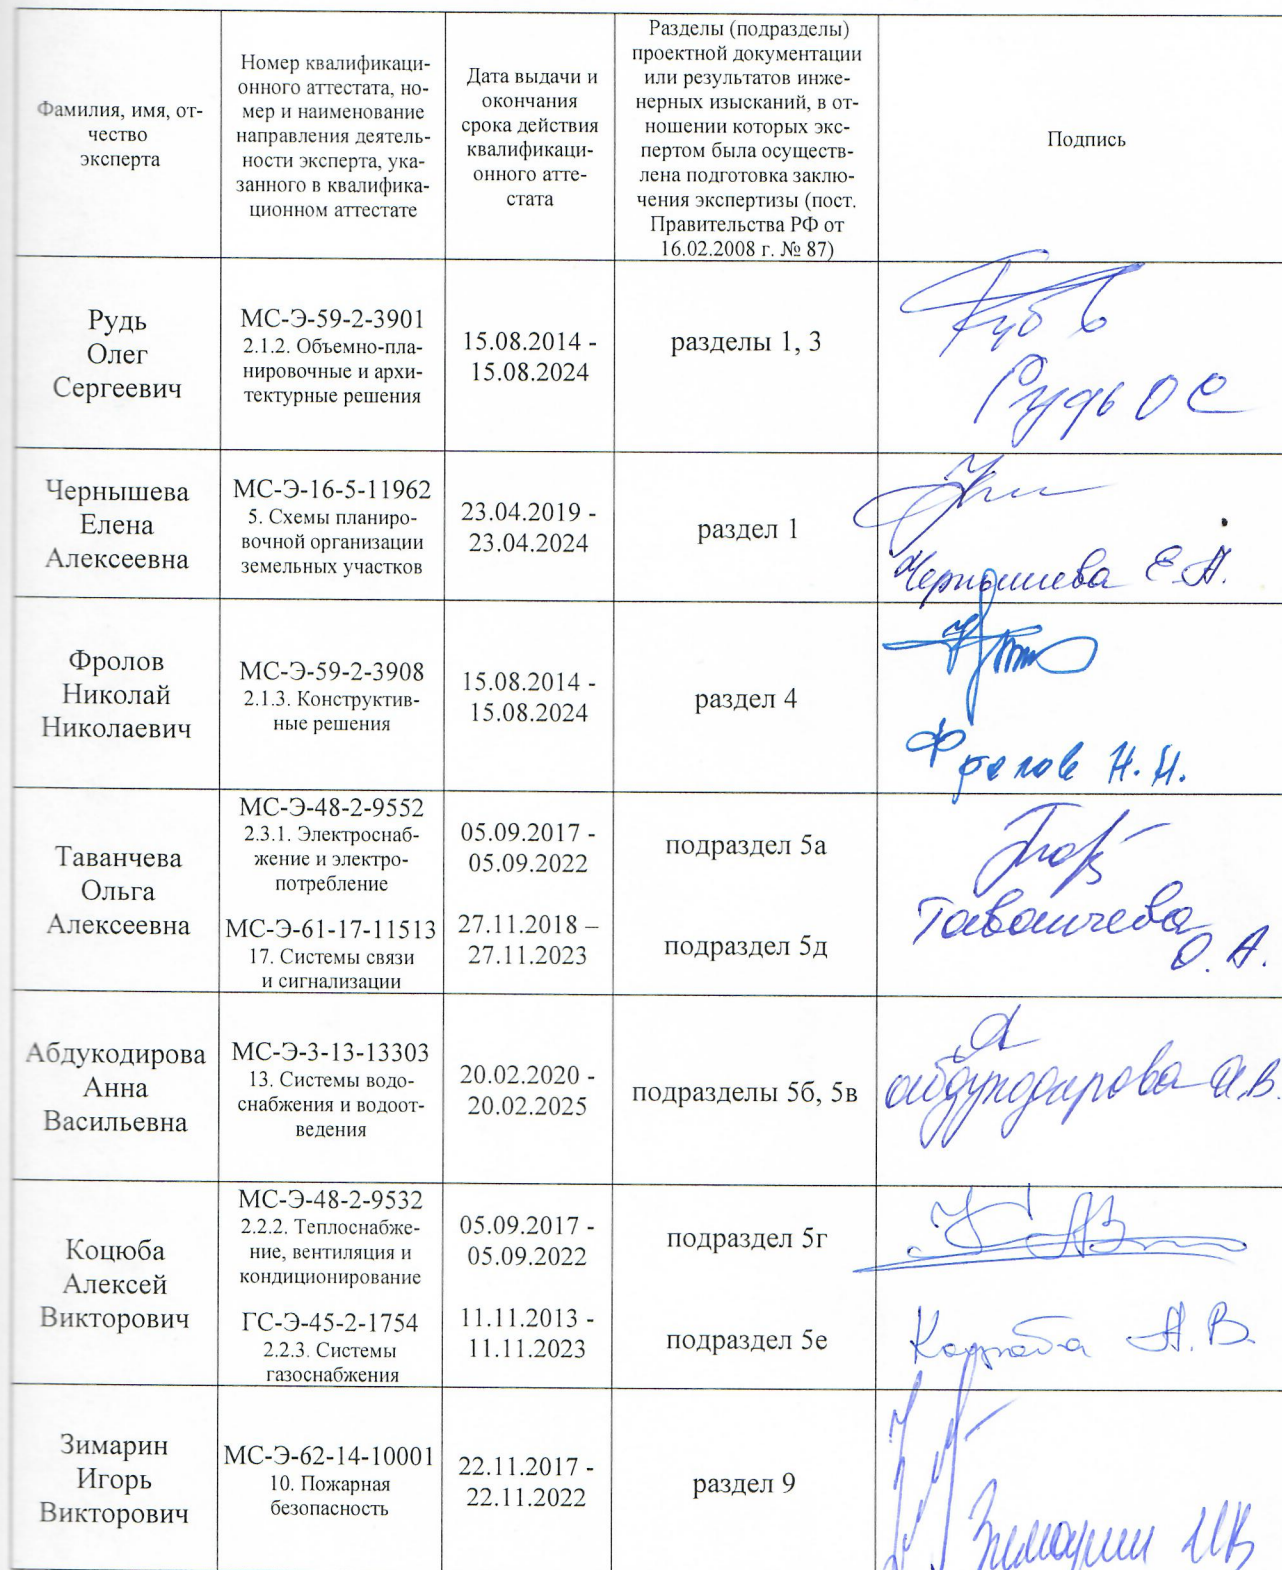 Фамилия, имя, от-
чество
эксперта
Номер квалификаци-
онного аттестата, но-
мер и наименование
направления деятель-
ности эксперта, ука-
занного в квалифика-
ционном аттестате
Дата выдачи и
окончания
срока действия
квалификаци-
онного атте-
стата
Разделы (подразделы)
проектной документации
или результатов инже-
нерных изысканий, в от-
ношении которых экс-
пертом была осуществ-
лена подготовка заклю-
чения экспертизы (пост.
Правительства РФ от
16.02.2008 г. № 87)
Подпись
Рудь
Олег
Сергеевич
МС-Э-59-2-3901
2.1.2. Объемно-пла-
нировочные и архи-
тектурные решения
15.08.2014 -
15.08.2024
разделы 1, 3
Рудь О С
Чернышева
Елена
Алексеевна
МС-Э-16-5-11962
5. Схемы планиро-
вочной организации
земельных участков
23.04.2019 -
23.04.2024
раздел 1
Чернышева Е.А.
Фролов
Николай
Николаевич
МС-Э-59-2-3908
2.1.3. Конструктив-
ные решения
15.08.2014 -
15.08.2024
раздел 4
Фролов Н.Н.
Таванчева
Ольга
Алексеевна
МС-Э-48-2-9552
2.3.1. Электроснаб-
жение и электро-
потребление
05.09.2017 -
05.09.2022
подраздел 5а
МС-Э-61-17-11513
17. Системы связи
и сигнализации
27.11.2018 –
27.11.2023
подраздел 5д
Таванчева
О. А.
Абдукодирова
Анна
Васильевна
МС-Э-3-13-13303
13. Системы водо-
снабжения и водоот-
ведения
20.02.2020 -
20.02.2025
подразделы 5б, 5в
Абдукодирова А.В.
Коцюба
Алексей
Викторович
МС-Э-48-2-9532
2.2.2. Теплоснабже-
ние, вентиляция и
кондиционирование
05.09.2017 -
05.09.2022
подраздел 5г
ГС-Э-45-2-1754
2.2.3. Системы
газоснабжения
11.11.2013 -
11.11.2023
подраздел 5е
Коцюба А.В.
Зимарин
Игорь
Викторович
МС-Э-62-14-10001
10. Пожарная
безопасность
22.11.2017 -
22.11.2022
раздел 9
Зимарин ИВ